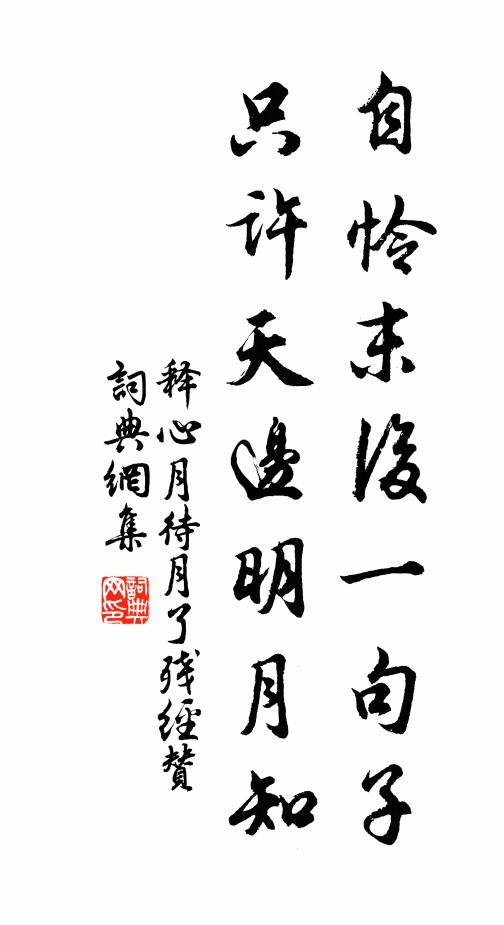 自怜末後一句子
只許天邊明月知
释心月待月了残經贊
詞典網集
詞典网印